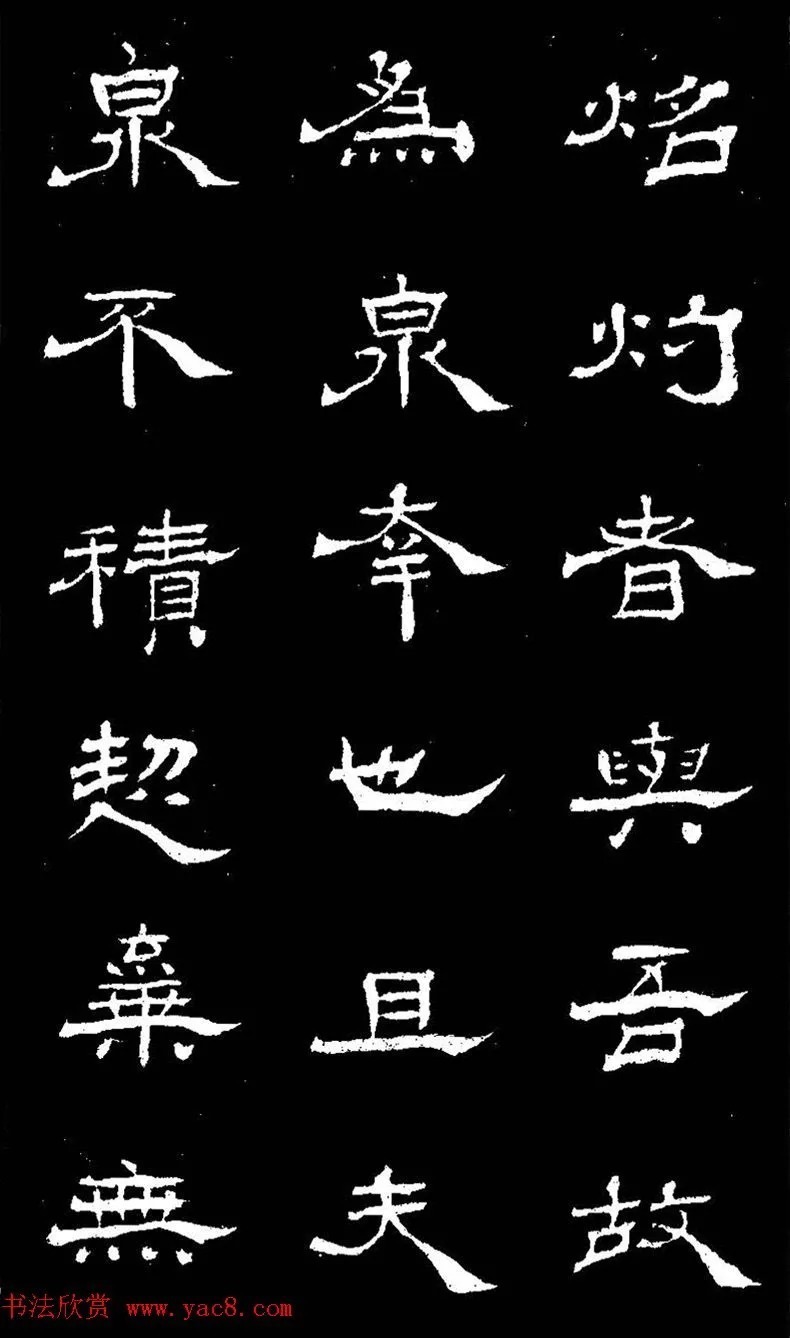 焰灼者與吾故
為泉幸也且夫
泉不積契棄無
书法欣赏 www.yac8.com